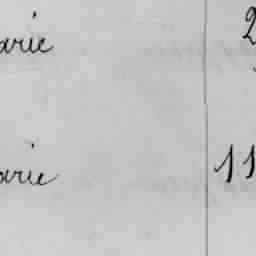 arie 2
arie 11